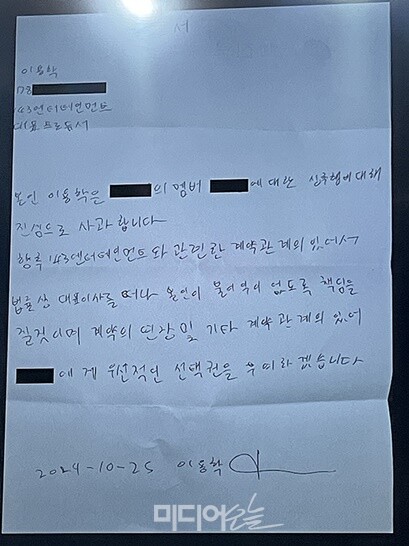 서
이용학
78
143엔터테인먼트
대표 프로듀서
본인 이용학은 의 멤버 에 대한 성추행에 대해
진심으로 사과 합니다
향후 143엔터테인먼트와 관련한 계약관계의 있어서
법률상 대표이사를 떠나 본인이 불이익이 없도록 책임을
질것이며 계약의 연장 및 기타 계약 관계의 있어
에게 우선적인 선택권을 우
겠습니다
2024-10-25 이용학
미디어오늘